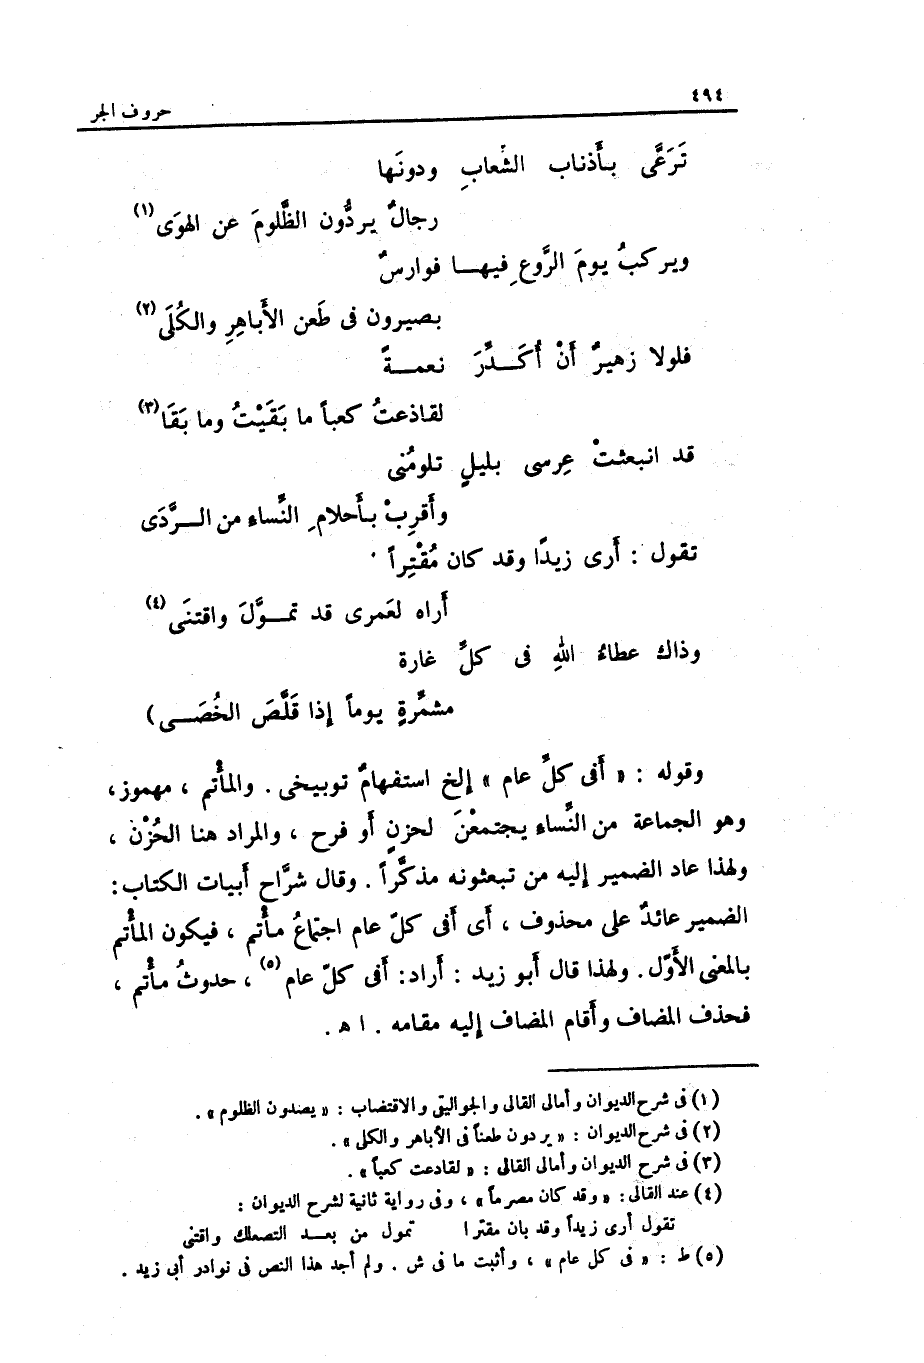 ٤٩٤
حروف الجر
تَرَعَّى بأَذناب الشِّعابِ ودونَها
رجالٌ يردُّون الظَّلومَ عن الهوَى (١)
ويركبُ يومَ الرَّوعِ فيهـا فوارسٌ
بصيرون فى طَعن الأَباهِرِ والكُلَى (٢)
فلولا زهيرٌ أَنْ أُكَـدِّرَ نعمـةً
لقاذعتُ كعباً ما بَقَيْتُ وما بَقَا (٣)
قد انبعثتْ عِرسى بليلٍ تلومُنى
وأَقرِبْ بأَحلامِ النِّساء من الـرَّدَى
تقول : أَرى زيدًا وقد كان مُقْتِراً
أَراه لعَمرى قد تمـوَّلَ واقتنَى (٤)
وذاك عطاءُ اللهِ فى كلِّ غارة
مشمِّرةٍ يوماً إذا قَلَّصَ الخُصَـى)
وقوله : « أَفى كلِّ عام » إلخ استفهامٌ توبيخى . والمأْتم ، مهموز ،
وهو الجماعة من النِّساء يجتمعْنَ لحزنٍ أَو فرح ، والمراد هنا الحُزْن ،
ولهذا عاد الضمير إليه من تبعثونه مذكَّراً . وقال شرَّاح أبيات الكتاب :
الضمير عائدٌ على محذوف ، أَى أَفى كلّ عام اجتماعُ مأْتم ، فيكون المأْتم
بالمعنى الأَوّل . ولهذا قال أَبو زيد : أَراد: أَفى كلّ عام (٥) ، حدوثُ مأْتم ،
فحذف المضاف وأَقام المضاف إليه مقامه . ا هـ .
(١) فى شرح الديوان وأمالى القالى والجواليق والاقتضاب : « يصدون الظلوم » .
(٢) فى شرح الديوان : « يردون طعناً فى الأباهر والكلى » .
(٣) فى شرح الديوان وأمالى القالى : « لقادعت كعباً » .
(٤) عند القالى : « وقد كان مصرماً » ، وفى رواية ثانية لشرح الديوان :
تقول أرى زيداً وقد بان مقترا تمول من بعـد التصعلك واقتنى
(٥) ط : « فى كل عام » ، وأثبت ما فى ش . ولم أجد هذا النص فى نوادر أبى زيد .